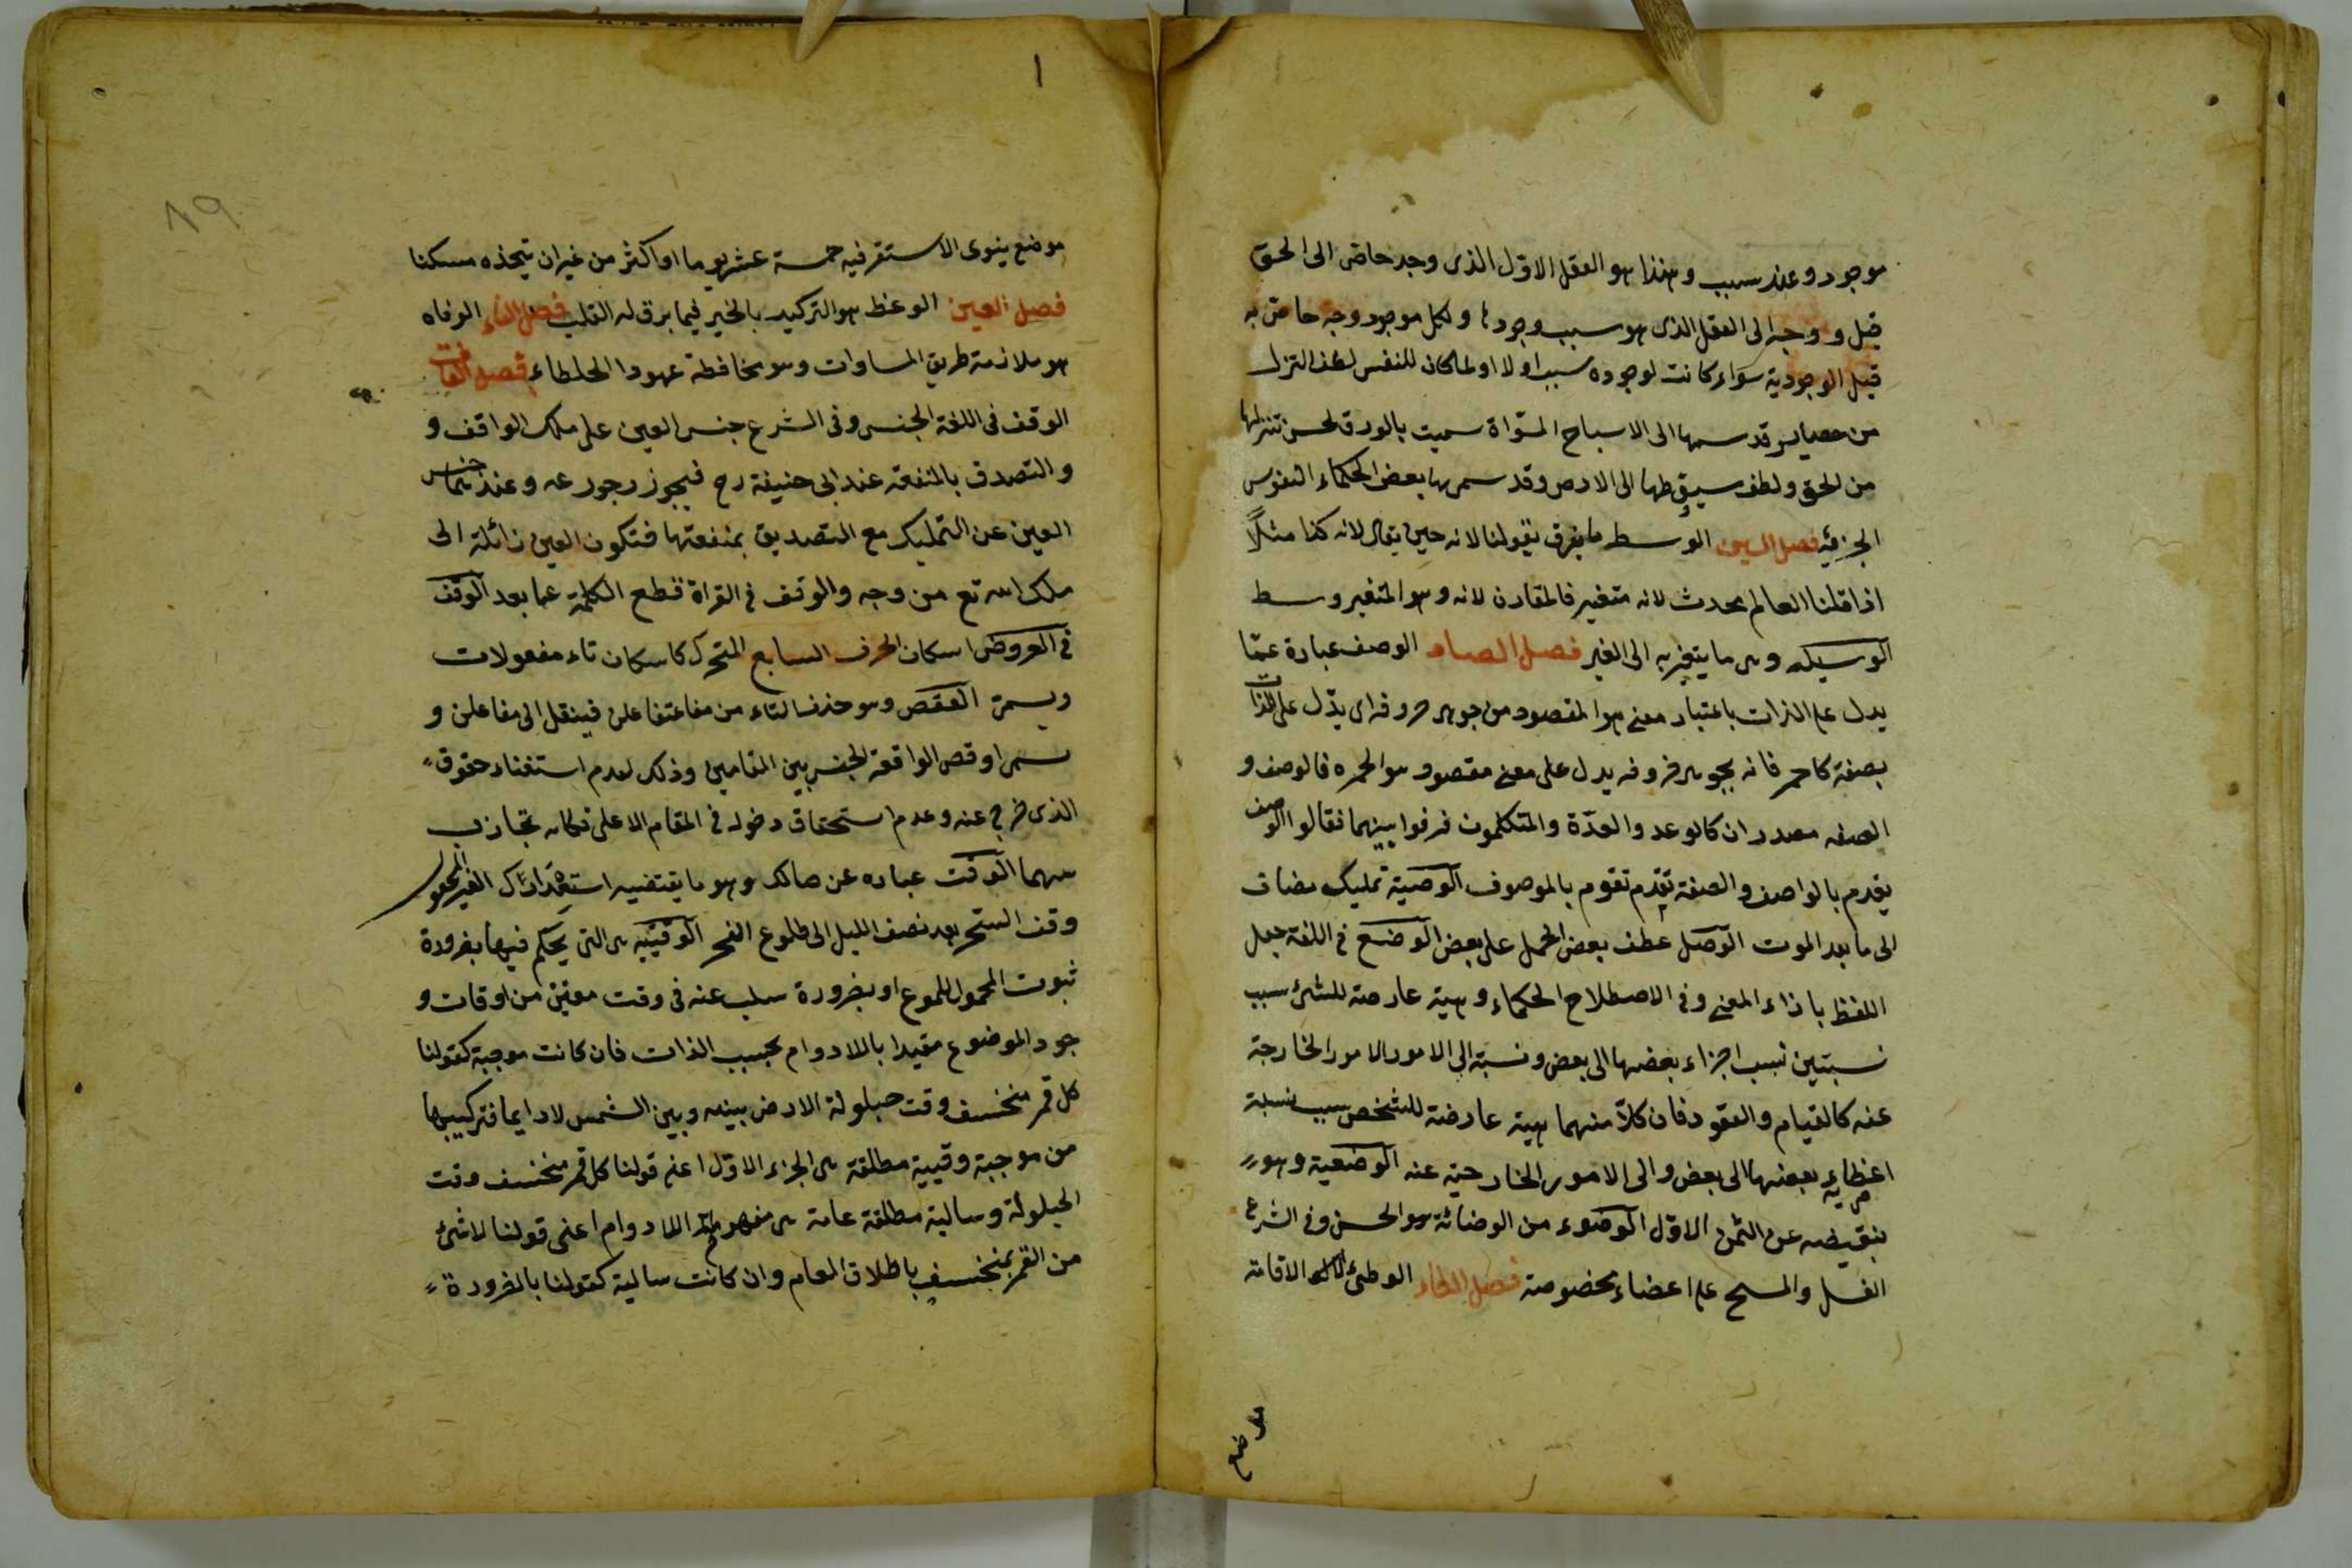 موجود وعند سبب وهذا هو العقل الاول الذى وجد خاص الى الحق
قبل و وجه الى العقل الذى هو سبب وجودها ولكل موجود وجه خاص به
قبل الوجودية سواء كانت لوجوده سبب او لا ولما كان للنفس لطف التنزل
من قدسها الى الاسباح المسواة سميت بالورقا لحسن تنزلها
من الحق ولطف سقوطها الى الارض وقد سمى بها بعض الحكماء النفوس
الجزئية فصل السين الوسط ما يقرن بقولنا لانه حين يقال لانه كذا مثلاً
اذا قلنا العالم محدث لانه متغير فالمقارن لانه وهو المتغير وسط
الوسيلة وهى ما يتقرب به الى الغير فصل الصاد الوصف عبارة عمّا
يدل على الذات باعتبار معنى هو المقصود من جوهر حروفه اى يدّل على الذات
بصفة كاحمر فانه بجوهر حروفه يدل على معنى مقصود وهو الحمره فالوصف و
الصفه مصدران كالوعد والعدّة والمتكلمون فرقوا بينهما فقالوا الوصف
يقدم بالواصف والصفة تقدم تقوم بالموصوف الوصية تمليك مضاف
الى ما بعد الموت الوصل عطف بعض الجمل على بعض الوضع فى اللغة جعل
اللفظ باذاء المعنى وفى الاصطلاح الحكماء وهيئة عارضة للشئ سبب
نسبتين نسب اجزاء بعضها الى بعض ونسبة الى الامور الامور الخارجة
عنه كالقيام والقعود فان كلاّ منهما هيئة عارضة للشخص سبب نسبة
اعضاء بعضها الى بعض والى الامور الخارجية عنه الوضعية وهو
بنقيضه عن الثمن الاول الوضوء من الوضائة وهو الحسن وفى الشرع
الغسل والمسح على اعضاء مخصوصة فصل الطاء الوطئ الاقامة
موضع
١
٨٩
موضع ينوى الاستقر فيه خمسة عشر يوما او اكثر من غير ان يتخذه مسكنا
فصل العين الوعظ هو التركيد بالخير فيما يرق له القلب فصل الفاء الوفاه
هو ملازمة طريق المساوات وهو محافظة عهود الخلطاء فصل القاف
الوقف فى اللغة الحبس وفى الشرع حبس العين على ملك الواقف و
والتصدق بالمنفعة عند ابى حنيفة رح فيجوز رجوعه وعندهما حبس
العين عن التمليك مع التصديق بمنفعتها فتكون العين زائلة الى
ملك الله تع من وجه والوقف فى القراة قطع الكلمة عما بعد الوقف
فى العروض اسكان الحرف السابع المتحرك كاسكان تاء مفعولات
ويسمى الوقص وهو حذف التاء من متفاعلن فينقل الى مفاعلن و
يسمى اوقص الواقعة الحبس بين المقامين وذلك لعدم استغناء حقوق
الذى خرج عنه وعدم استحقاق دخوله فى المقام الاعلى فكانه تجاذب
سهما الوقت عباره عن حالك وهو ما يقتضيه استعدادك الغير المجعول
وقت السحر بعد نصف الليل الى طلوع الفجر الوقتيه هى التى يحكم فيها بضرورة
ثبوت المحمول للموع او بضرورة سلب عنه فى وقت معين من اوقات و
جود الموضوع مقيدا باللادوام بحسب الذات فان كانت موجبة كقولنا
كل قمر منخسف وقت حيلولة الارض بينه وبين الشمس لادايما فتركيبها
من موجبة وقتية مطلقة هى الجزء الاول اعنى قولنا كل قمر منخسف وقت
الحيلولة وسالبة مطلقة عامة هى مفهوم اللادوام اعنى قولنا لا شئ
من القمر بمنخسف باطلاق العام وان كانت سالبة كقولنا بالضرورة